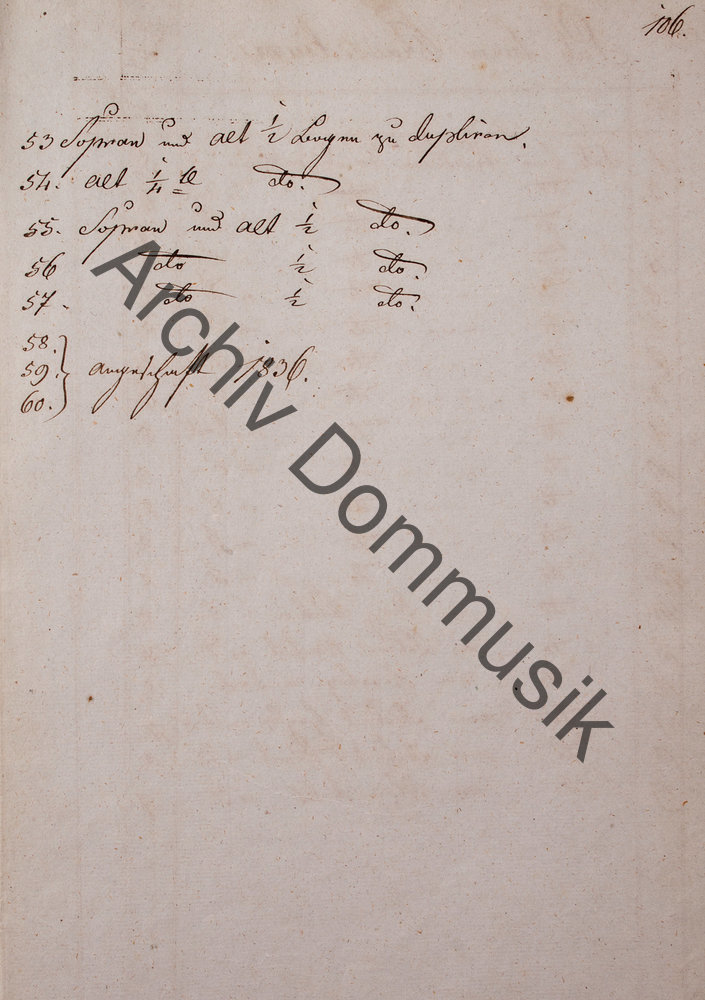 106.
53 Sopran und alt 1/2 Bogen zu dupliren.
54. alt 1/4 do.
55. Sopran und alt 1/2 do.
56 do 1/2 do.
57. do 1/2 do.
58.
59. } angeschaft 1836.
60.
Archiv Dommusik